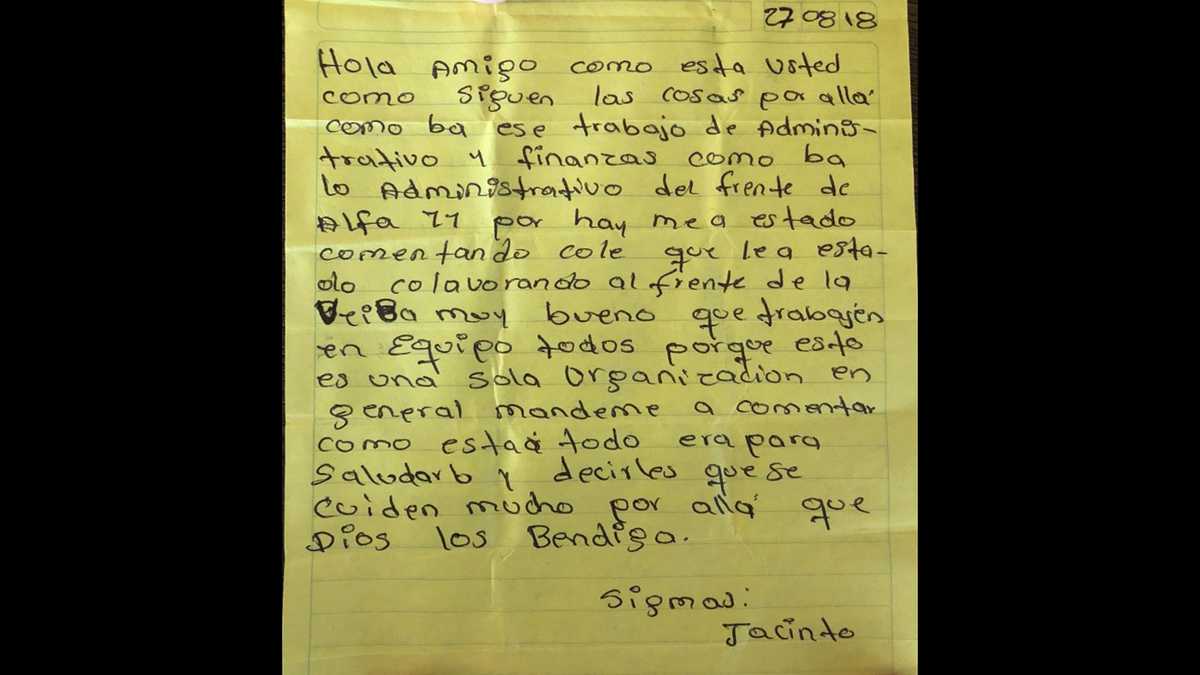 27 08 18
Hola Amigo como esta usted
como siguen las cosas por allá
como ba ese trabajo de Adminis-
trativo y finanzas como ba
lo Administrativo del frente de
Alfa 11 por hay me a estado
comentando cole que le a esta-
do colavorando al frente de la
muy bueno que trabajen
en Equipo todos porque esto
es una sola Organizacion en
general mandeme a comentar
como está todo era para
Saludarlo y decirles que se
Cuiden mucho por allá que
Dios los Bendiga.
Sigmas:
Jacinto